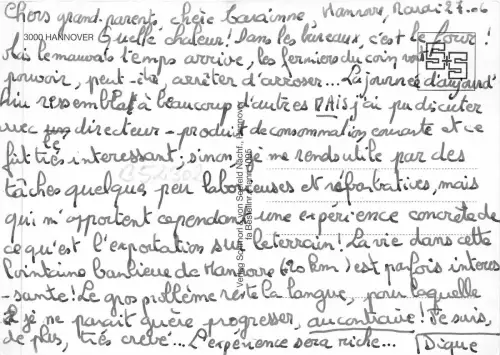 Chers grand-parents, chère baranne, Hannovre, Mardi 27.06
3000 HANNOVER Quelle chaleur! Dans les bureaux, c'est le four!
Mais le mauvais temps arrive, les fermiers du coin vont
pouvoir, peut-être, arrêter d'arroser... La journée d'aujourd'
hui ressemblait à beaucoup d'autres MAIS j'ai pu discuter
avec le directeur-produit de consommation courante et ce
fut très interessant; sinon, je me rends utile par des
tâches quelque peu laborieuses et rébarbatives, mais
qui m'apportent cependant une expérience concrète de
ce qu'est l'exportation sur le terrain! La vie dans cette
lointaine banlieue de Hanovre (20 km) est parfois interes
-sante! Le gros problème reste la langue, pour laquelle
je ne parait guère progresser, au contraire! Je suis,
de plus, très crevé... L'expérience sera riche...
Verlag Schöning & von Seffeld Nachf., Hannover